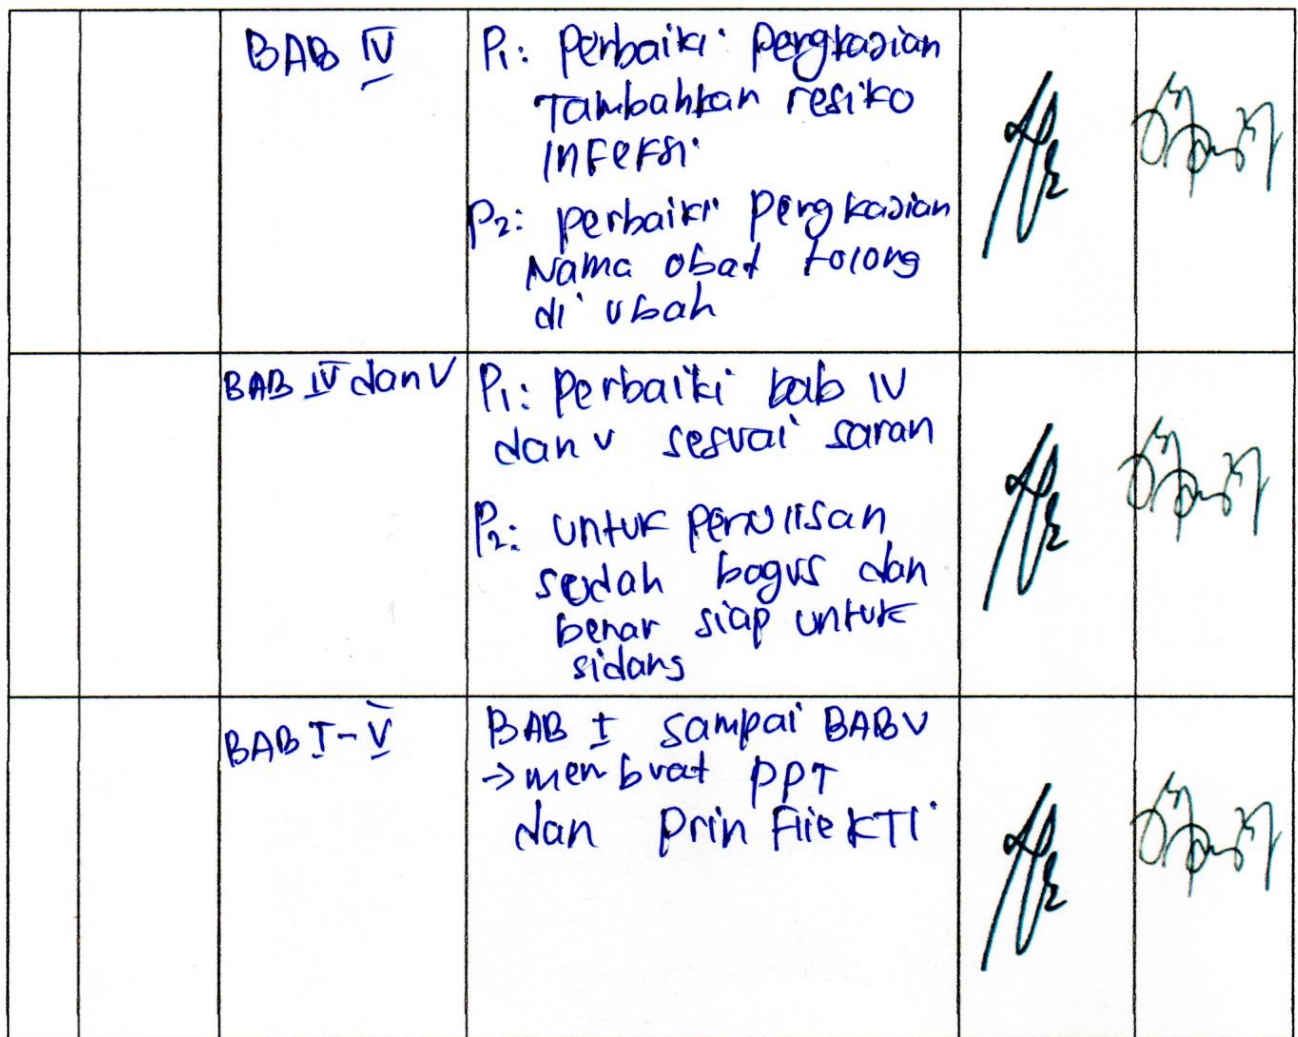 BAB IV
P1: Perbaiki pengkajian
Tambahkan resiko
infeksi
P2: perbaiki pengkajian
Nama obat tolong
di ubah
BAB IV dan V
P1: Perbaiki bab IV
dan V sesuai saran
P2: untuk penulisan
sudah bagus dan
benar siap untuk
sidang
BAB I-V
BAB I sampai BAB V
→ membuat PPT
dan prin File KTI